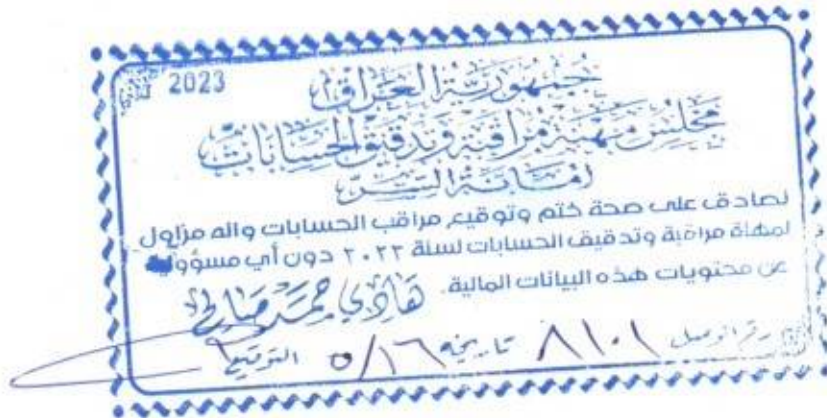 2023
جمهورية العراق
مجلس مهنة مراقبة وتدقيق الحسابات
امانة السر
نصادق على صحة ختم وتوقيع مراقب الحسابات وانه مزاول
لمهنة مراقبة وتدقيق الحسابات لسنة ٢٠٢٢ دون أي مسؤولية
عن محتويات هذه البيانات المالية.
هادي حمد صالح
رقم الوصل ٨١٠١ تاريخه ٥/١٦ التوقيع